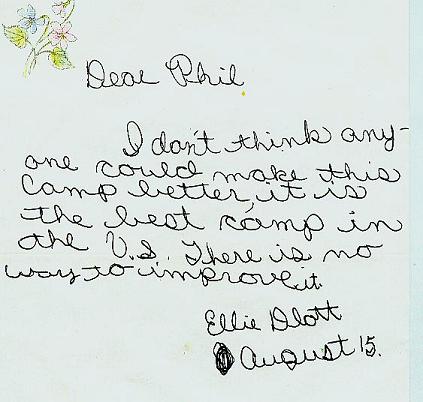 Dear Phil
I don't think any-
one could make this
camp better, it is
the best camp in
the U.S. There is no
way to improve it.
Ellie Dlott
August 15.